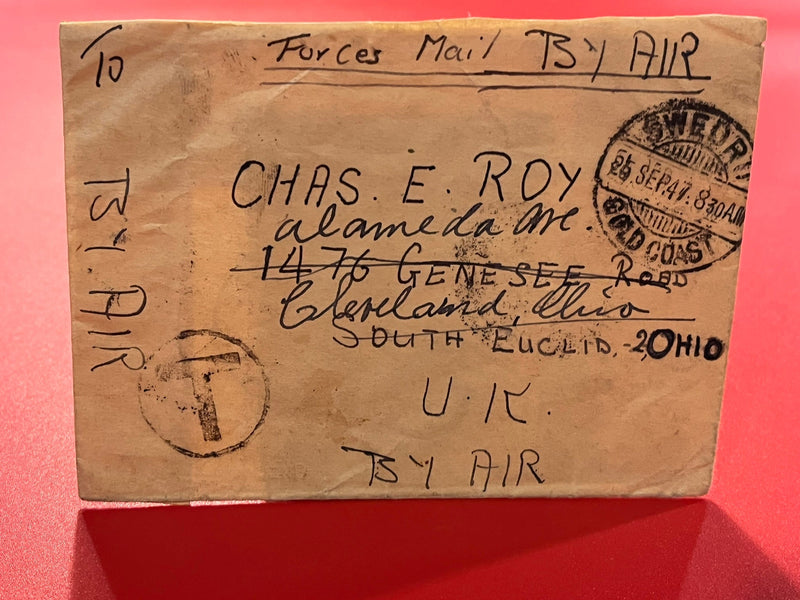 To
Forces Mail BY AIR
BY AIR
SWEDRU
26 SEP.47. 830AM
GOLD COAST
CHAS. E. ROY
Alameda Ave.
1476 GENESEE ROAD
Cleveland, Ohio
SOUTH EUCLID, -2, OHIO
U.K.
BY AIR
T